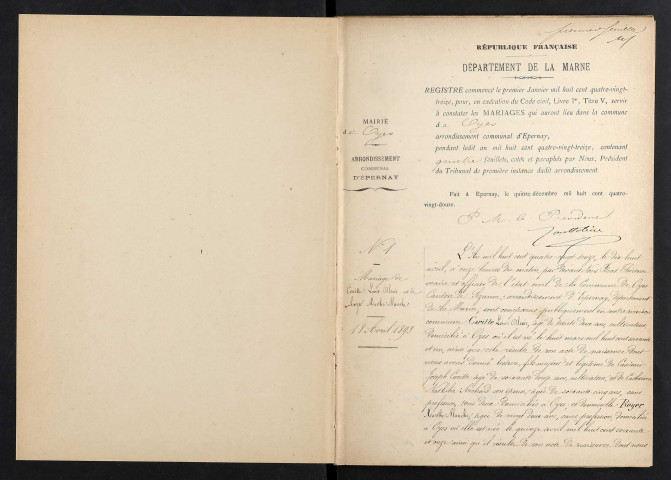 premier feuillet
RÉPUBLIQUE FRANÇAISE
DÉPARTEMENT DE LA MARNE
REGISTRE commencé le premier Janvier mil huit cent quatre-vingt-
treize, pour, en exécution du Code civil, Livre Ier, Titre V, servir
à constater les MARIAGES qui auront lieu dans la commune
d'Oyes
arrondissement communal d'Epernay,
pendant ledit an mil huit cent quatre-vingt-treize, contenant
feuillets, cotés et paraphés par Nous, Président
du Tribunal de première instance dudit arrondissement.
Fait à Epernay, le quinze décembre mil huit cent quatre-
vingt-douze.
P. M. le Président
MAIRIE
d'Oyes
ARRONDISSEMENT
COMMUNAL
D'ÉPERNAY
N° 1
Mariage de
Louis
et de
18 Avril 1893
L'An mil huit cent quatre vingt treize, le dix huit
avril, à onze heures du matin, par devant nous
maire et officier de l'état civil de la Commune de Oyes
Canton de Sézanne, arrondissement d'Epernay, département
de la Marne, sont comparus publiquement en notre maison
commune Louis, âgé de trente deux ans, cultivateur,
domicilié à Oyes où il est né le huit mars mil huit cent soixante
et un, ainsi que cela résulte de son acte de naissance dont
nous avons donné lecture, fils majeur et légitime de
Joseph âgé de soixante ans, cultivateur, et de Catherine
son épouse, âgée de soixante cinq ans, sans
profession, tous deux domiciliés à Oyes, et demoiselle Royer
âgée de vingt deux ans, sans profession, domiciliée
à Oyes où elle est née le quinze avril mil huit cent soixante
et onze ainsi qu'il résulte de son acte de naissance dont nous